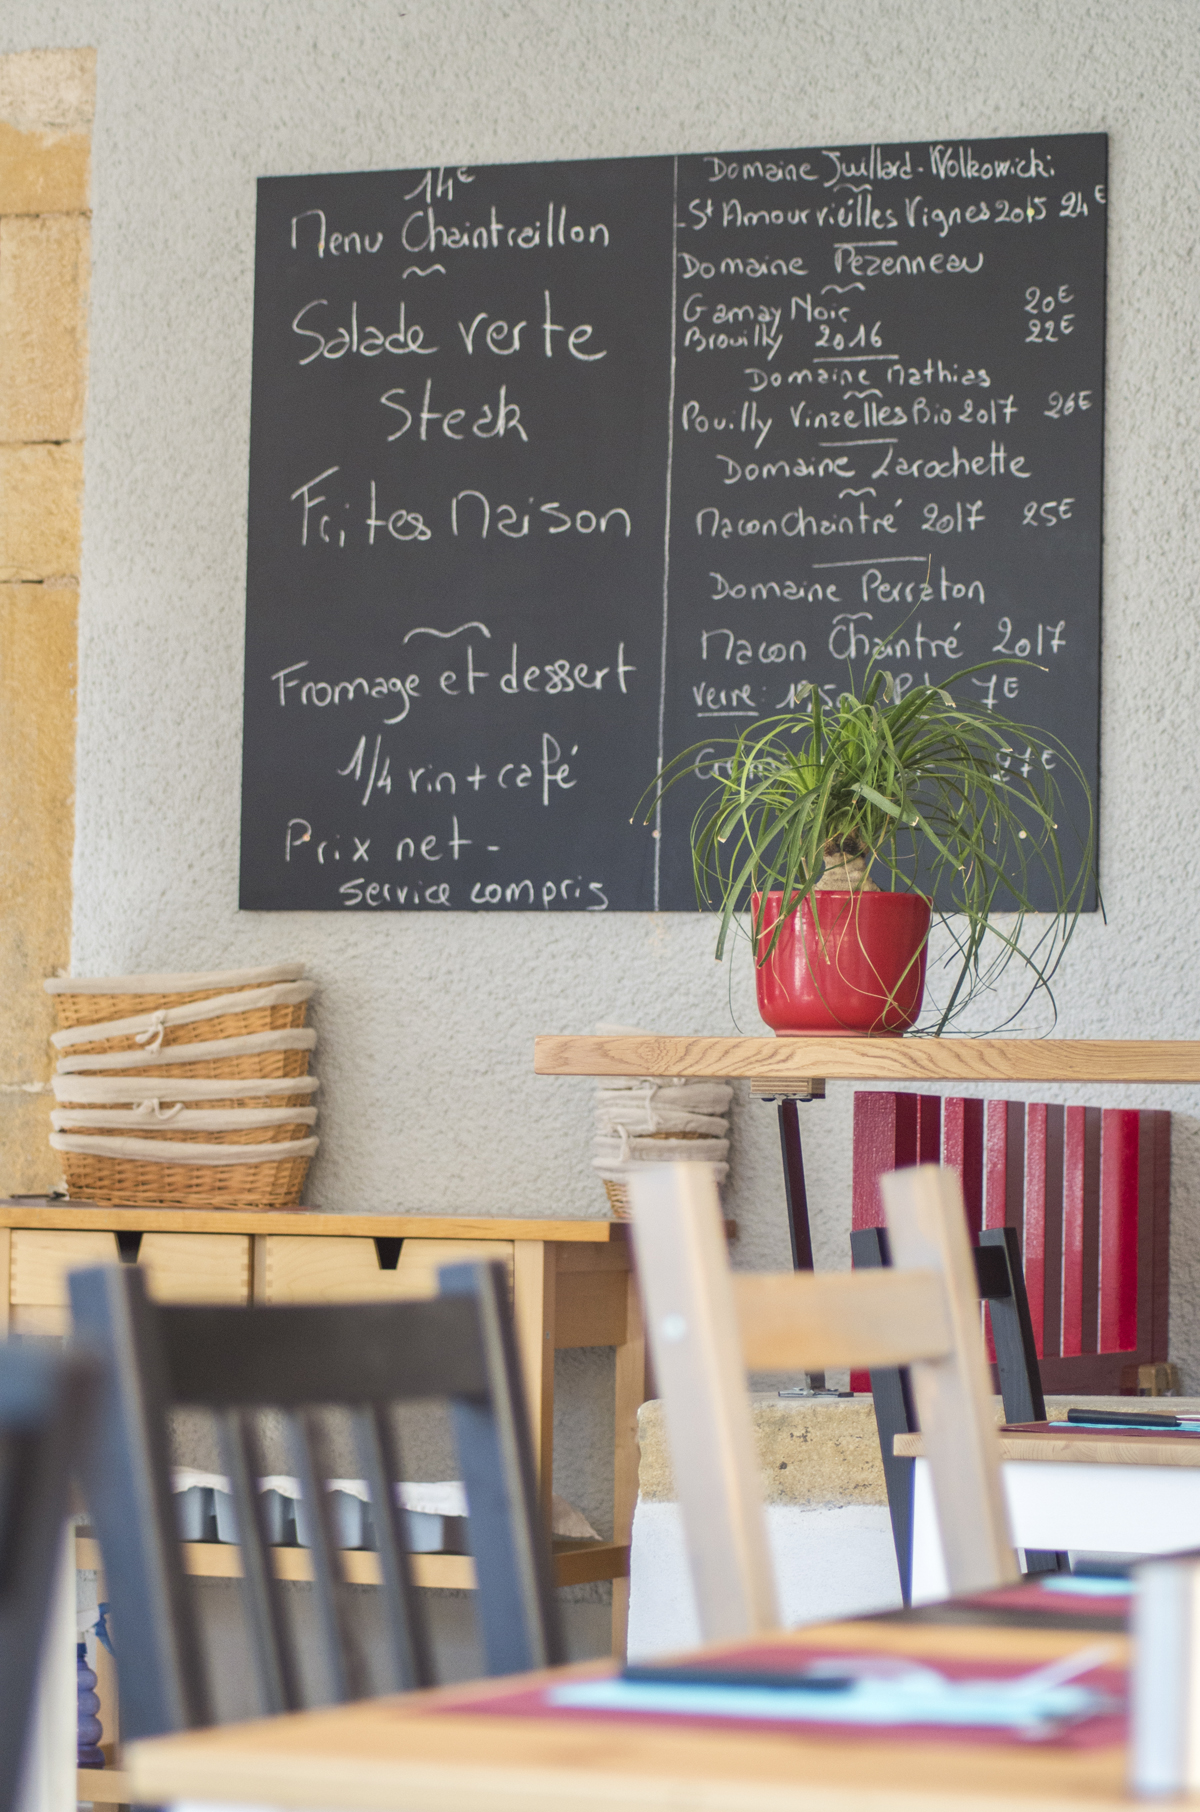 14€
Menu Chaintraillon
Salade verte
Steak
Frites Maison
Fromage et dessert
1/4 vin + café
Prix net -
service compris
Domaine Juillard-Wolkowicki
-St Amour vieilles Vignes 2015 24€
Domaine Pezenneau
Gamay Noir 20€
Brouilly 2016 22€
Domaine Mathias
Pouilly Vinzelles Bio 2017 26€
Domaine Larochette
Macon Chaintré 2017 25€
Domaine Perraton
Macon Chaintré 2017
verre: 7€